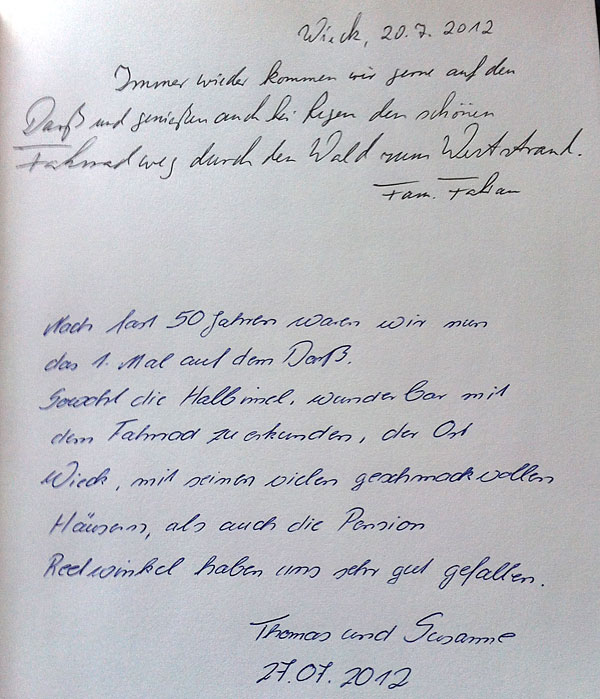 Wieck, 20.7.2012
Immer wieder kommen wir gerne auf den
Darß und genießen auch bei Regen den schönen
Fahrradweg durch den Wald zum Weststrand.
Fam. Fabian
Nach fast 50 Jahren waren wir nun
das 1. Mal auf dem Darß.
Sowohl die Halbinsel, wunderbar mit
dem Fahrrad zu erkunden, der Ort
Wieck, mit seinen vielen geschmackvollen
Häusern, als auch die Pension
Reetwinkel haben uns sehr gut gefallen.
Thomas und Susanne
27.07.2012